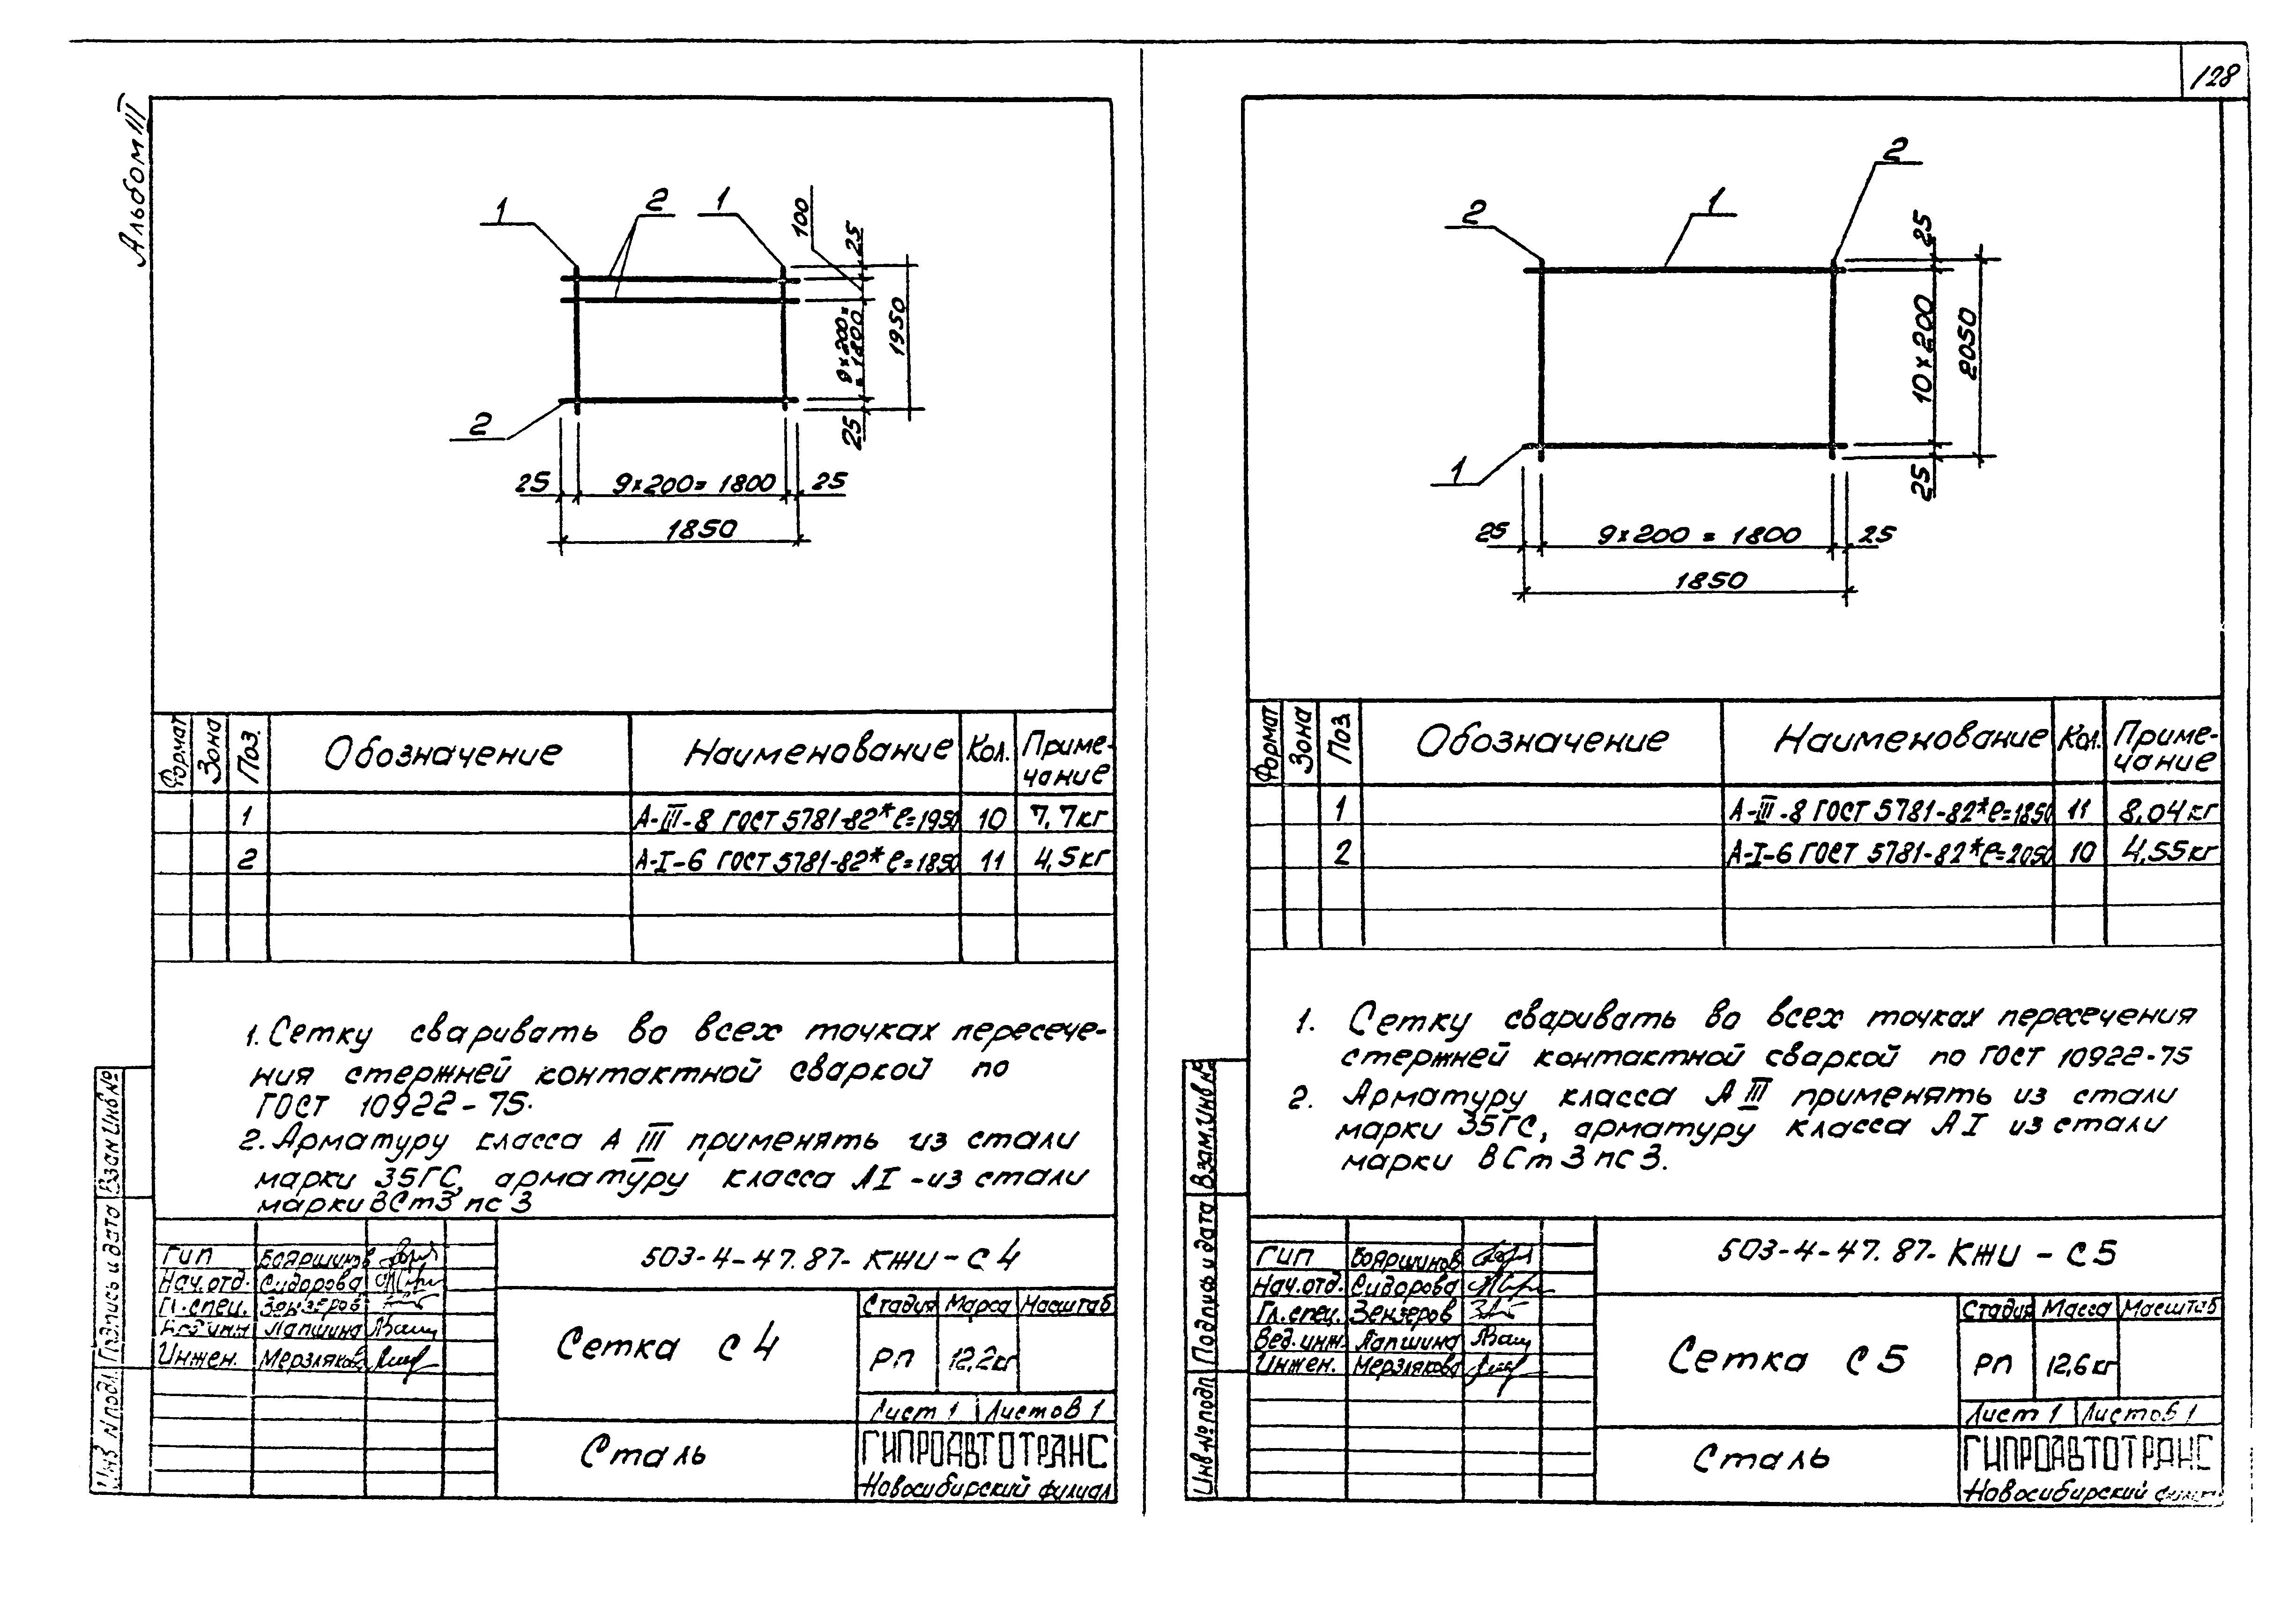 128
Альбом III
1
2
1
100
25
9×200=
=1800
1950
25
2
25
9×200=1800
25
1850
Формат
Зона
Поз.
Обозначение
Наименование
Кол.
Приме-
чание
1 А-III-8 ГОСТ 5781-82* ℓ=1950 10 7,7кг
2 А-I-6 ГОСТ 5781-82* ℓ=1850 11 4,5кг
1. Сетку сваривать во всех точках пересече-
ния стержней контактной сваркой по
ГОСТ 10922-75.
2. Арматуру класса А III применять из стали
марки 35ГС, арматуру класса АI - из стали
марки ВСт3 пс 3
Взам Инв №
Подпись и дата
Инв N подл.
ГИП Бояршинов
Нач.отд. Сидорова
Гл.спец. Зензеров
Вед инж Лапшина
Инжен. Мерзлякова
503-4-47.87-КЖИ-С4
Сетка С4
Стадия Марса Масштаб
РП 12,2кг
Лист 1 Листов 1
Сталь
ГИПРОАВТОТРАНС
Новосибирский филиал
2
1
2
25
10×200
2050
25
1
25
9×200 = 1800
25
1850
Формат
Зона
Поз
Обозначение
Наименование
Кол.
Приме-
чание
1 А-III-8 ГОСТ 5781-82* ℓ=1850 11 8,04кг
2 А-I-6 ГОСТ 5781-82* ℓ=2050 10 4,55кг
1. Сетку сваривать во всех точках пересечения
стержней контактной сваркой по ГОСТ 10922-75
2. Арматуру класса А III применять из стали
марки 35ГС, арматуру класса АI из стали
марки ВСт 3 пс 3.
Взам.Инв №
Подпись и дата
Инв.№ подп
ГИП Бояршинов
Нач.отд. Сидорова
Гл.спец. Зензеров
Вед.инж. Лапшина
Инжен. Мерзлякова
503-4-47.87-КЖИ-С5
Сетка С5
Стадия Масса Масштаб
РП 12,6кг
Лист 1 Листов 1
Сталь
ГИПРОАВТОТРАНС
Новосибирский филиал